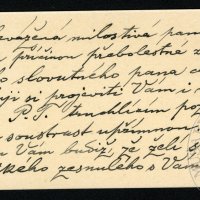 vážená milostivá pan
Příčinou přebolestné z
ho slovutného pana c
ji si projeviti Vám i
P. T. truchlícím poz
soustrast upřímnou
Vám budiž, že želí s
ského zesnulého s Vámi